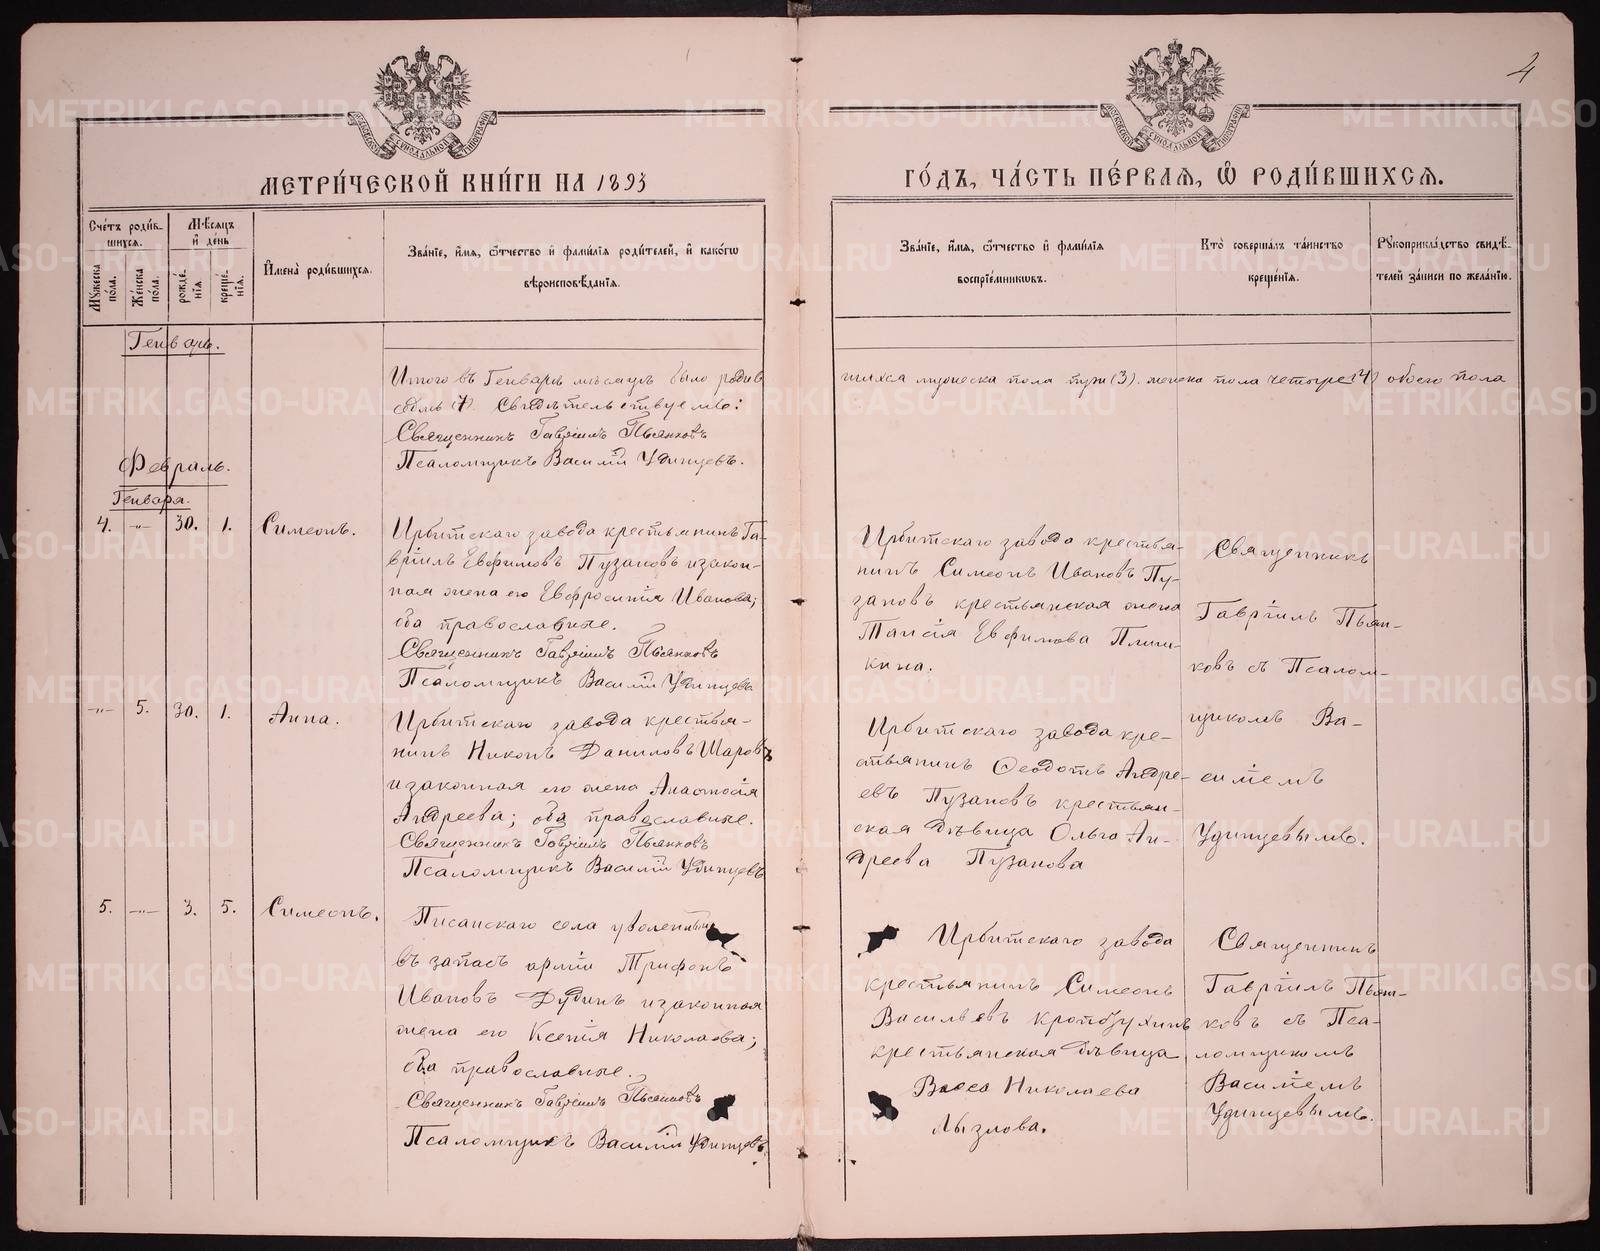 4
МОСКОВСКОЙ СѴНОДАЛЬНОЙ ТИПОГРАФІИ
МОСКОВСКОЙ СѴНОДАЛЬНОЙ ТИПОГРАФІИ
МЕТРИ́ЧЕСКОЙ КНИ́ГИ НА 1893
ГО́ДЪ, ЧА́СТЬ ПЕ́РВАЯ, Ѿ РОДИ́ВШИХСЯ.
Сче́тъ роди́в-
шихся.
Му́жеска по́ла.
Же́нска по́ла.
Мѣ́сяцъ и́ де́нь
рожде́нія.
креще́нія.
И҆мена̀ роди́вшихся.
Зва́ніе, и҆́мя, ѻ҆́тчество и҆ фами́лія роди́телей, и҆ како́гѡ
вѣроисповѣ́данія.
Зва́ніе, и҆́мя, ѻ҆́тчество и҆ фами́лія
воспріе́мниковъ.
Кто̀ соверша́лъ та́инство
креще́нія.
Рукоприкла́дство свидѣ́-
телей за́писи по жела́нію.
Генварь.
Итого въ Генварѣ мѣсяцѣ было родив
шихся мужеска пола три (3). женска пола четыре (4) обоего пола
седмь (7). Свидѣтельствуемъ:
Священникъ Гавріилъ Пьянковъ
Псаломщикъ Василій Удинцевъ.
Февраль.
Генваря.
4. -"- 30. 1. Симеонъ.
Ирбитскаго завода крестьянинъ Га-
вріилъ Евфимовъ Пузановъ и закон-
ная жена его Евфросинія Иванова;
оба православные.
Священникъ Гавріилъ Пьянковъ
Псаломщикъ Василій Удинцевъ
Ирбитскаго завода крестья-
нинъ Симеонъ Ивановъ Пу-
зановъ крестьянская жена
Таисія Евфимова Пиши-
кина.
Священникъ
Гавріилъ Пьян-
ковъ съ Псалом-
щикомъ Ва-
силіемъ
Удинцевымъ.
-"- 5. 30. 1. Анна.
Ирбитскаго завода крестья-
нинъ Никонъ Даниловъ Шаровъ
и законная его жена Анастасія
Андреева; оба православные.
Священникъ Гавріилъ Пьянковъ
Псаломщикъ Василій Удинцевъ
Ирбитскаго завода кре-
стьянинъ Ѳеодотъ Андре-
евъ Пузановъ крестьян-
ская дѣвица Ольга Ан-
дреева Пузанова
5. -"- 3. 5. Симеонъ.
Писанскаго села уволенный
въ запасъ арміи Трифонъ
Ивановъ Дудинъ и законная
жена его Ксенія Николаева;
оба православные.
Священникъ Гавріилъ Пьянковъ
Псаломщикъ Василій Удинцевъ
Ирбитскаго завода
крестьянинъ Симеонъ
Васильевъ Кропбухинъ
крестьянская дѣвица
Васса Николаева
Лызлова.
Священникъ
Гавріилъ Пьян-
ковъ съ Пса-
ломщикомъ
Василіемъ
Удинцевымъ.
METRIKI.GASO-URAL.RU